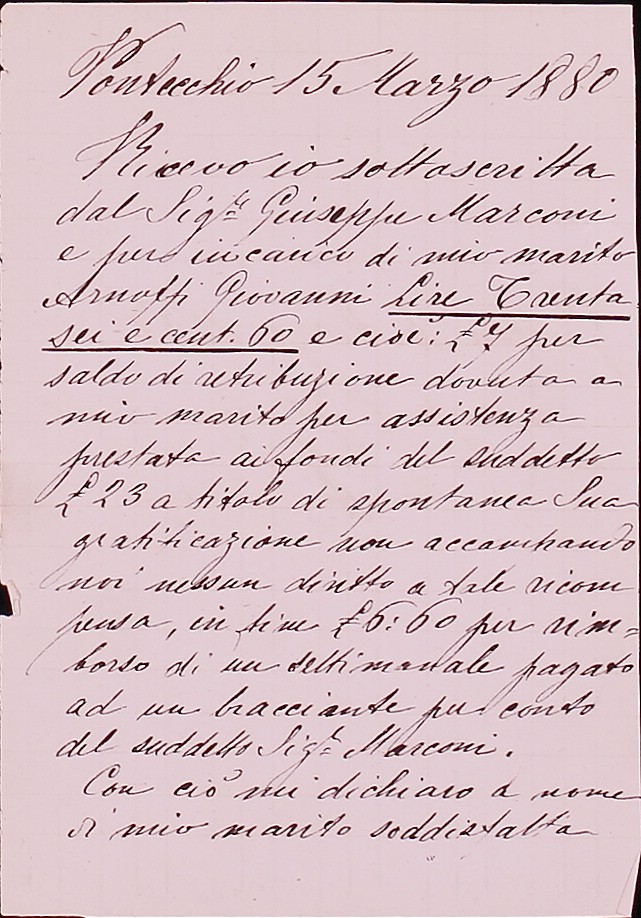 Pontecchio 15 Marzo 1880
Ricevo io sottoscritta
dal Sig.re Giuseppe Marconi
e per incarico di mio marito
Arnoffi Giovanni Lire Trenta
sei e cent. 60 e cioè: £ 7 per
saldo di retribuzione dovuta a
mio marito per assistenza
prestata ai fondi del suddetto
£ 23 a titolo di spontanea Sua
gratificazione non accampando
noi nessun diritto a tale ricom
pensa, in fine £ 6:60 per rim=
borso di un settimanale pagato
ad un bracciante per conto
del suddetto Sig.r Marconi.
Con ciò mi dichiaro a nome
di mio marito soddisfatta